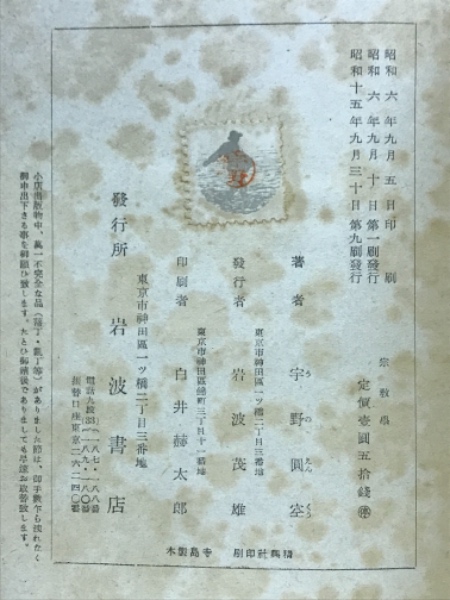 昭和六年九月五日印刷
昭和六年九月十日第一刷發行
昭和十五年九月三十日第九刷發行
宗敎學
定價壹圓五拾錢
著者 宇野圓空
うのゑんくう
東京市神田區一ツ橋二丁目三番地
發行者 岩波茂雄
東京市神田區錦町三丁目十一番地
印刷者 白井赫太郎
東京市神田區一ツ橋二丁目三番地
發行所 岩波書店
精興社印刷 寺島製本
小店出版物中、萬一不完全な品(落丁・亂丁等)がありました節は、御手數乍ら
御申出下さる事を御願ひ致します。たとひ御讀後でありましても早速お取替致します。